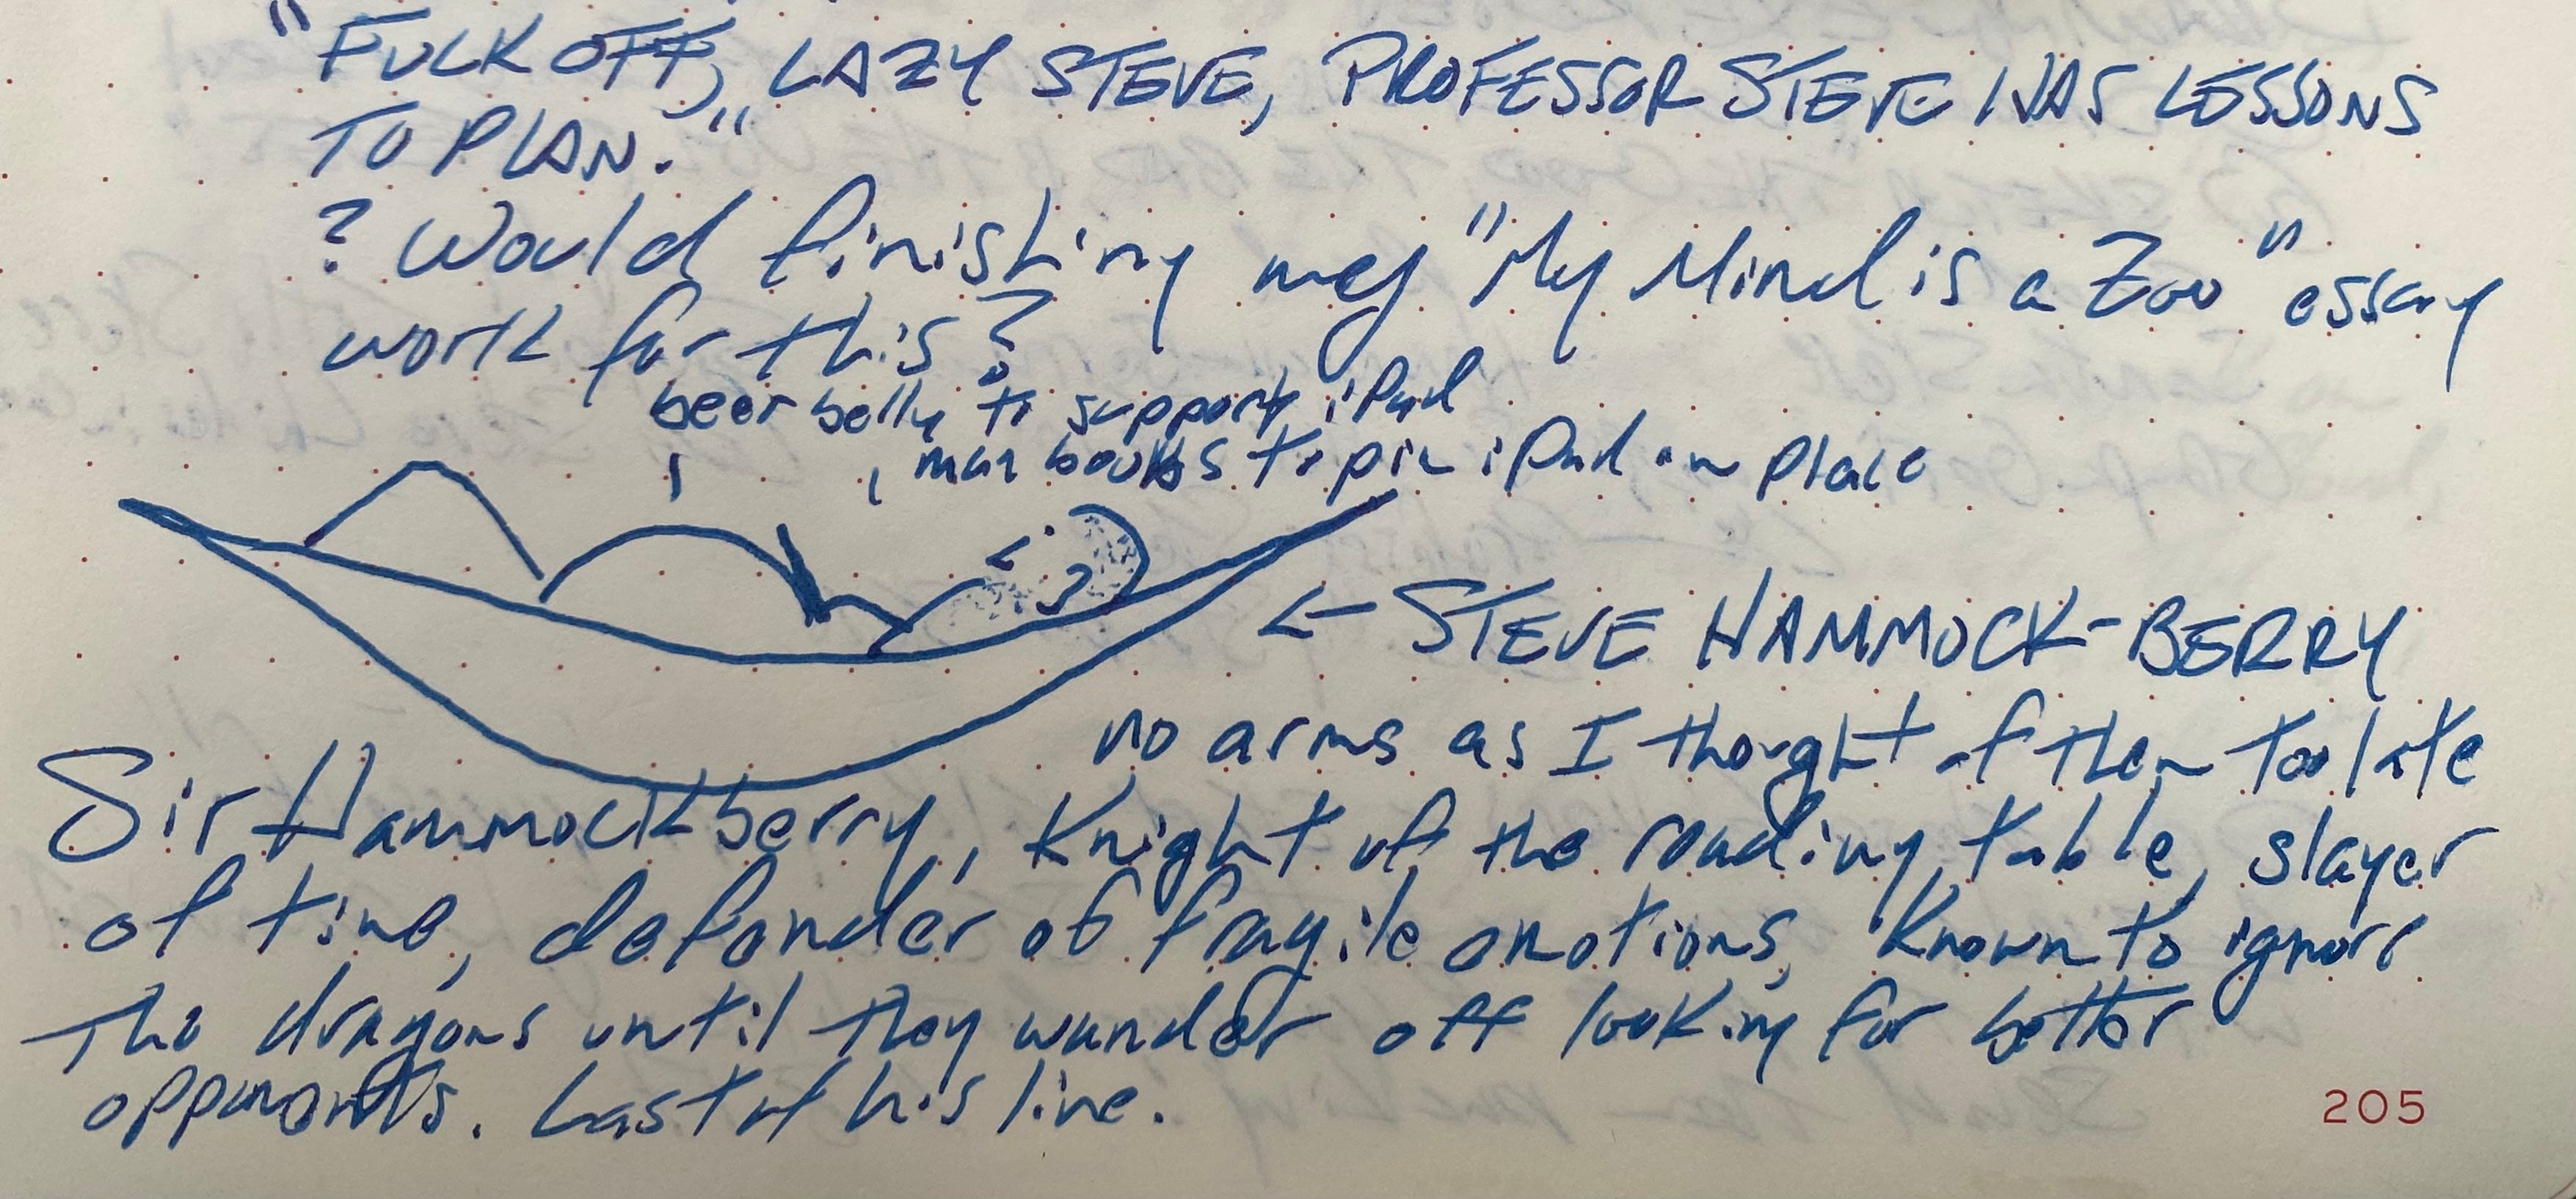 "FUCK OFF, LAZY STEVE, PROFESSOR STEVE HAS LESSONS
TO PLAN."
? Would finishing my "My Mind is a Zoo" essay
work for this?
beer belly to support iPad
man boobs to pin iPad in place
← STEVE HAMMOCK-BERRY
no arms as I thought of them too late
Sir Hammockberry, Knight of the reading table, slayer
of time, defender of fragile emotions, Known to ignore
the dragons until they wander off looking for better
opponents. Last of his line.
205